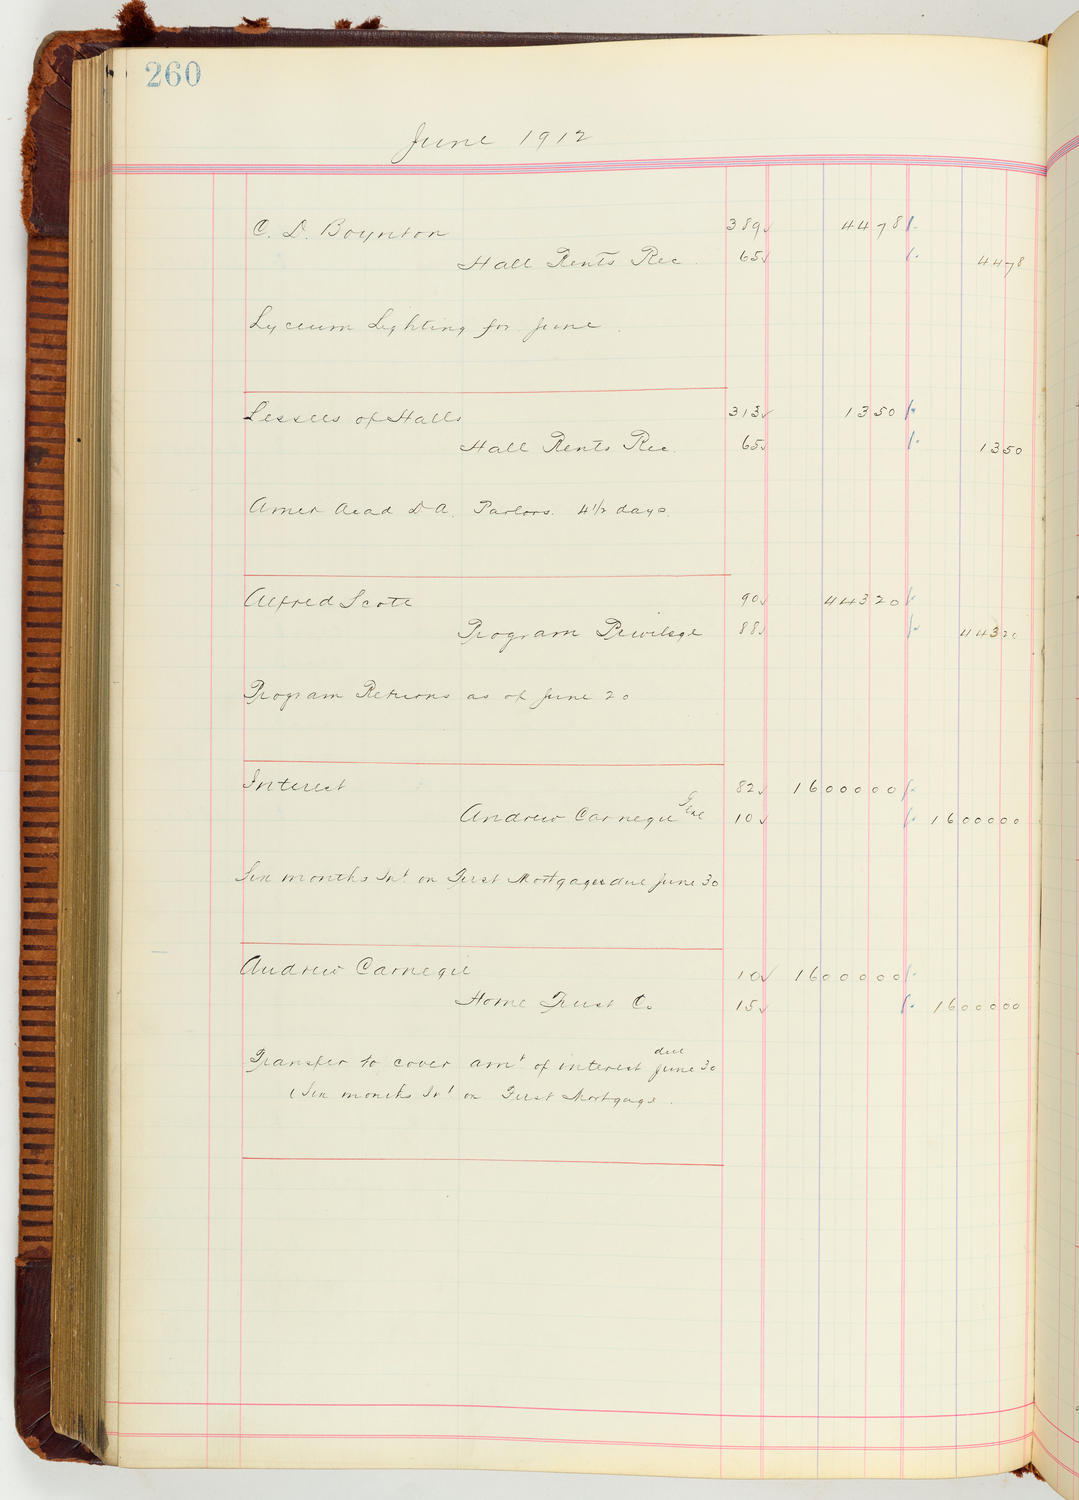 260
June 1912
C. D. Boynton 389 ✓ 4478
Hall Rents Rec. 65 ✓ 4478
Lyceum Lighting for June.
Lessees of Halls 313 ✓ 1350
Hall Rents Rec. 65 ✓ 1350
Amer Acad D A. Parlors. 4 1/2 days.
Alfred Scott 90 ✓ 44320
Program Privilege 88 ✓ 44320
Program Returns as of June 20
Interest 82 ✓ 1600000
Andrew Carnegie 10 ✓ 1600000
Six months Int on First Mortgages due June 30
Andrew Carnegie 10 ✓ 1600000
Home Trust Co. 15 ✓ 1600000
Transfer to cover amt of interest due June 30
(Six months Int on First Mortgage.